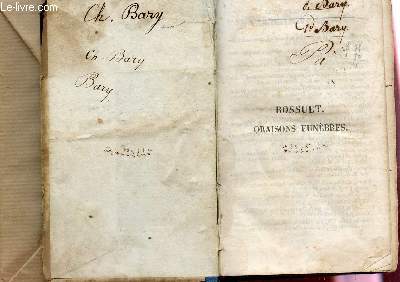 Le-livre.com
Ch. Bary
Ch. Bary
Bary
Bary
Bary
BOSSUET.
ORAISONS FUNÈBRES.